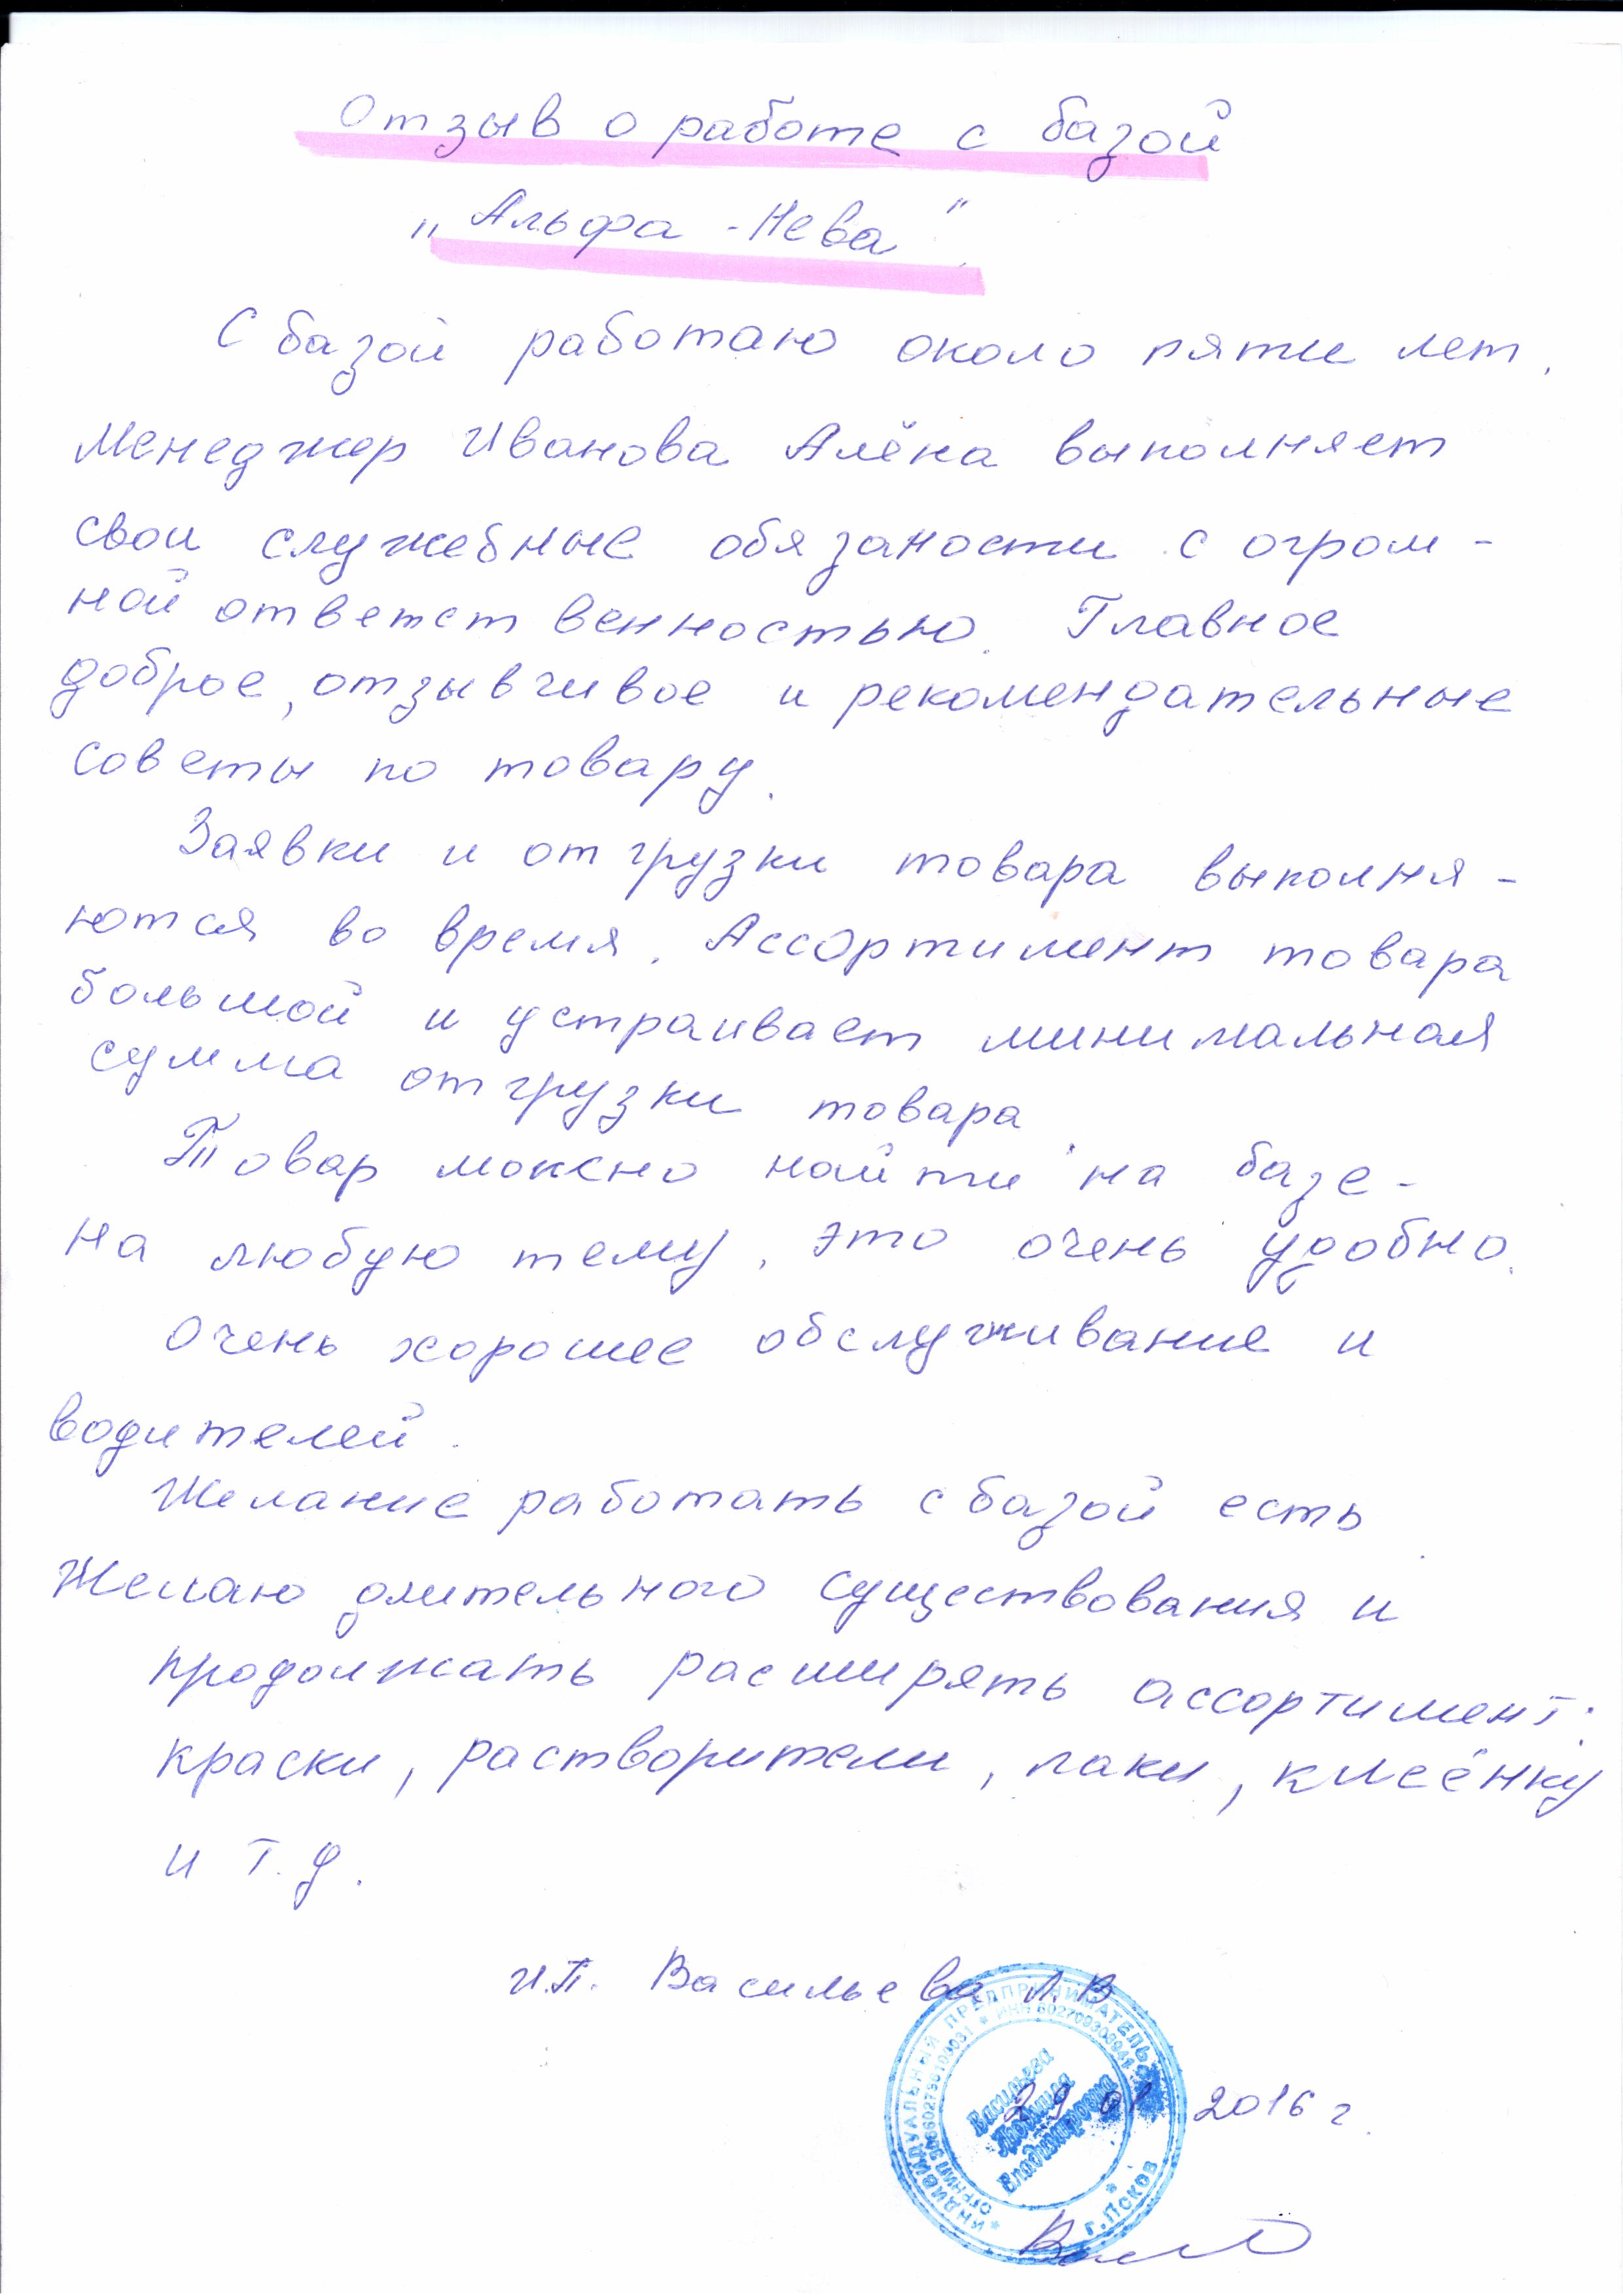 Отзыв о работе с базой
„Альфа-Нева".
С базой работаю около пяти лет.
Менеджер Иванова Алёна выполняет
свои служебные обязаности с огром-
ной ответственностью. Главное
доброе, отзывчивое и рекомендательные
советы по товару.
Заявки и отгрузки товара выполня-
ются во время. Ассортимент товара
большой и устраивает минимальная
сумма отгрузки товара.
Товар можно найти на базе -
на любую тему. Это очень удобно.
Очень хорошее обслуживание и
водителей.
Желание работать с базой есть.
Желаю длительного существования и
продолжать расширять ассортимент:
краски, растворители, лаки, клеёнку
и т.д.
И.П. Васильева Л.В
ИНДИВИДУАЛЬНЫЙ ПРЕДПРИНИМАТЕЛЬ
Васильева
Людмила
Владимировна
г. Псков
29 01 2016 г.